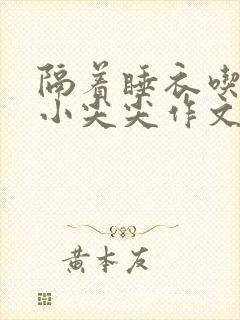 隔着睡衣喫
小尖尖作文
黄本友